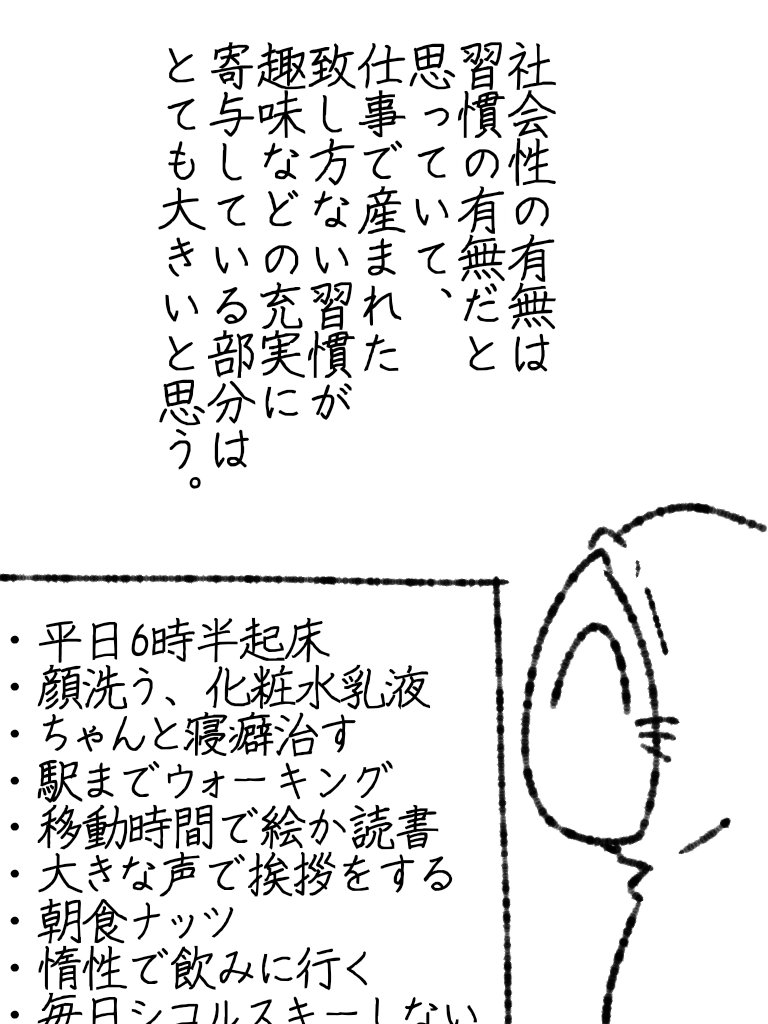 社会性の有無は
習慣の有無だと
思っていて、
仕事で産まれた
致し方ない習慣が
趣味などの充実に
寄与している部分は
とても大きいと思う。
・平日6時半起床
・顔洗う、化粧水乳液
・ちゃんと寝癖治す
・駅までウォーキング
・移動時間で絵か読書
・大きな声で挨拶をする
・朝食ナッツ
・惰性で飲みに行く
・毎日シコルスキーしない